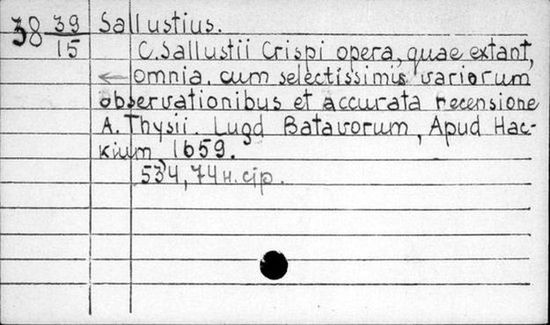 38 39/15 Sallustius.
C. Sallustii Crispi opera, quae extant,
omnia, cum selectissimis variorum
observationibus et accurata recensione
A. Thysii. Lugd Batavorum, Apud Hac-
kium, 1659.
534, 74 н. стр.